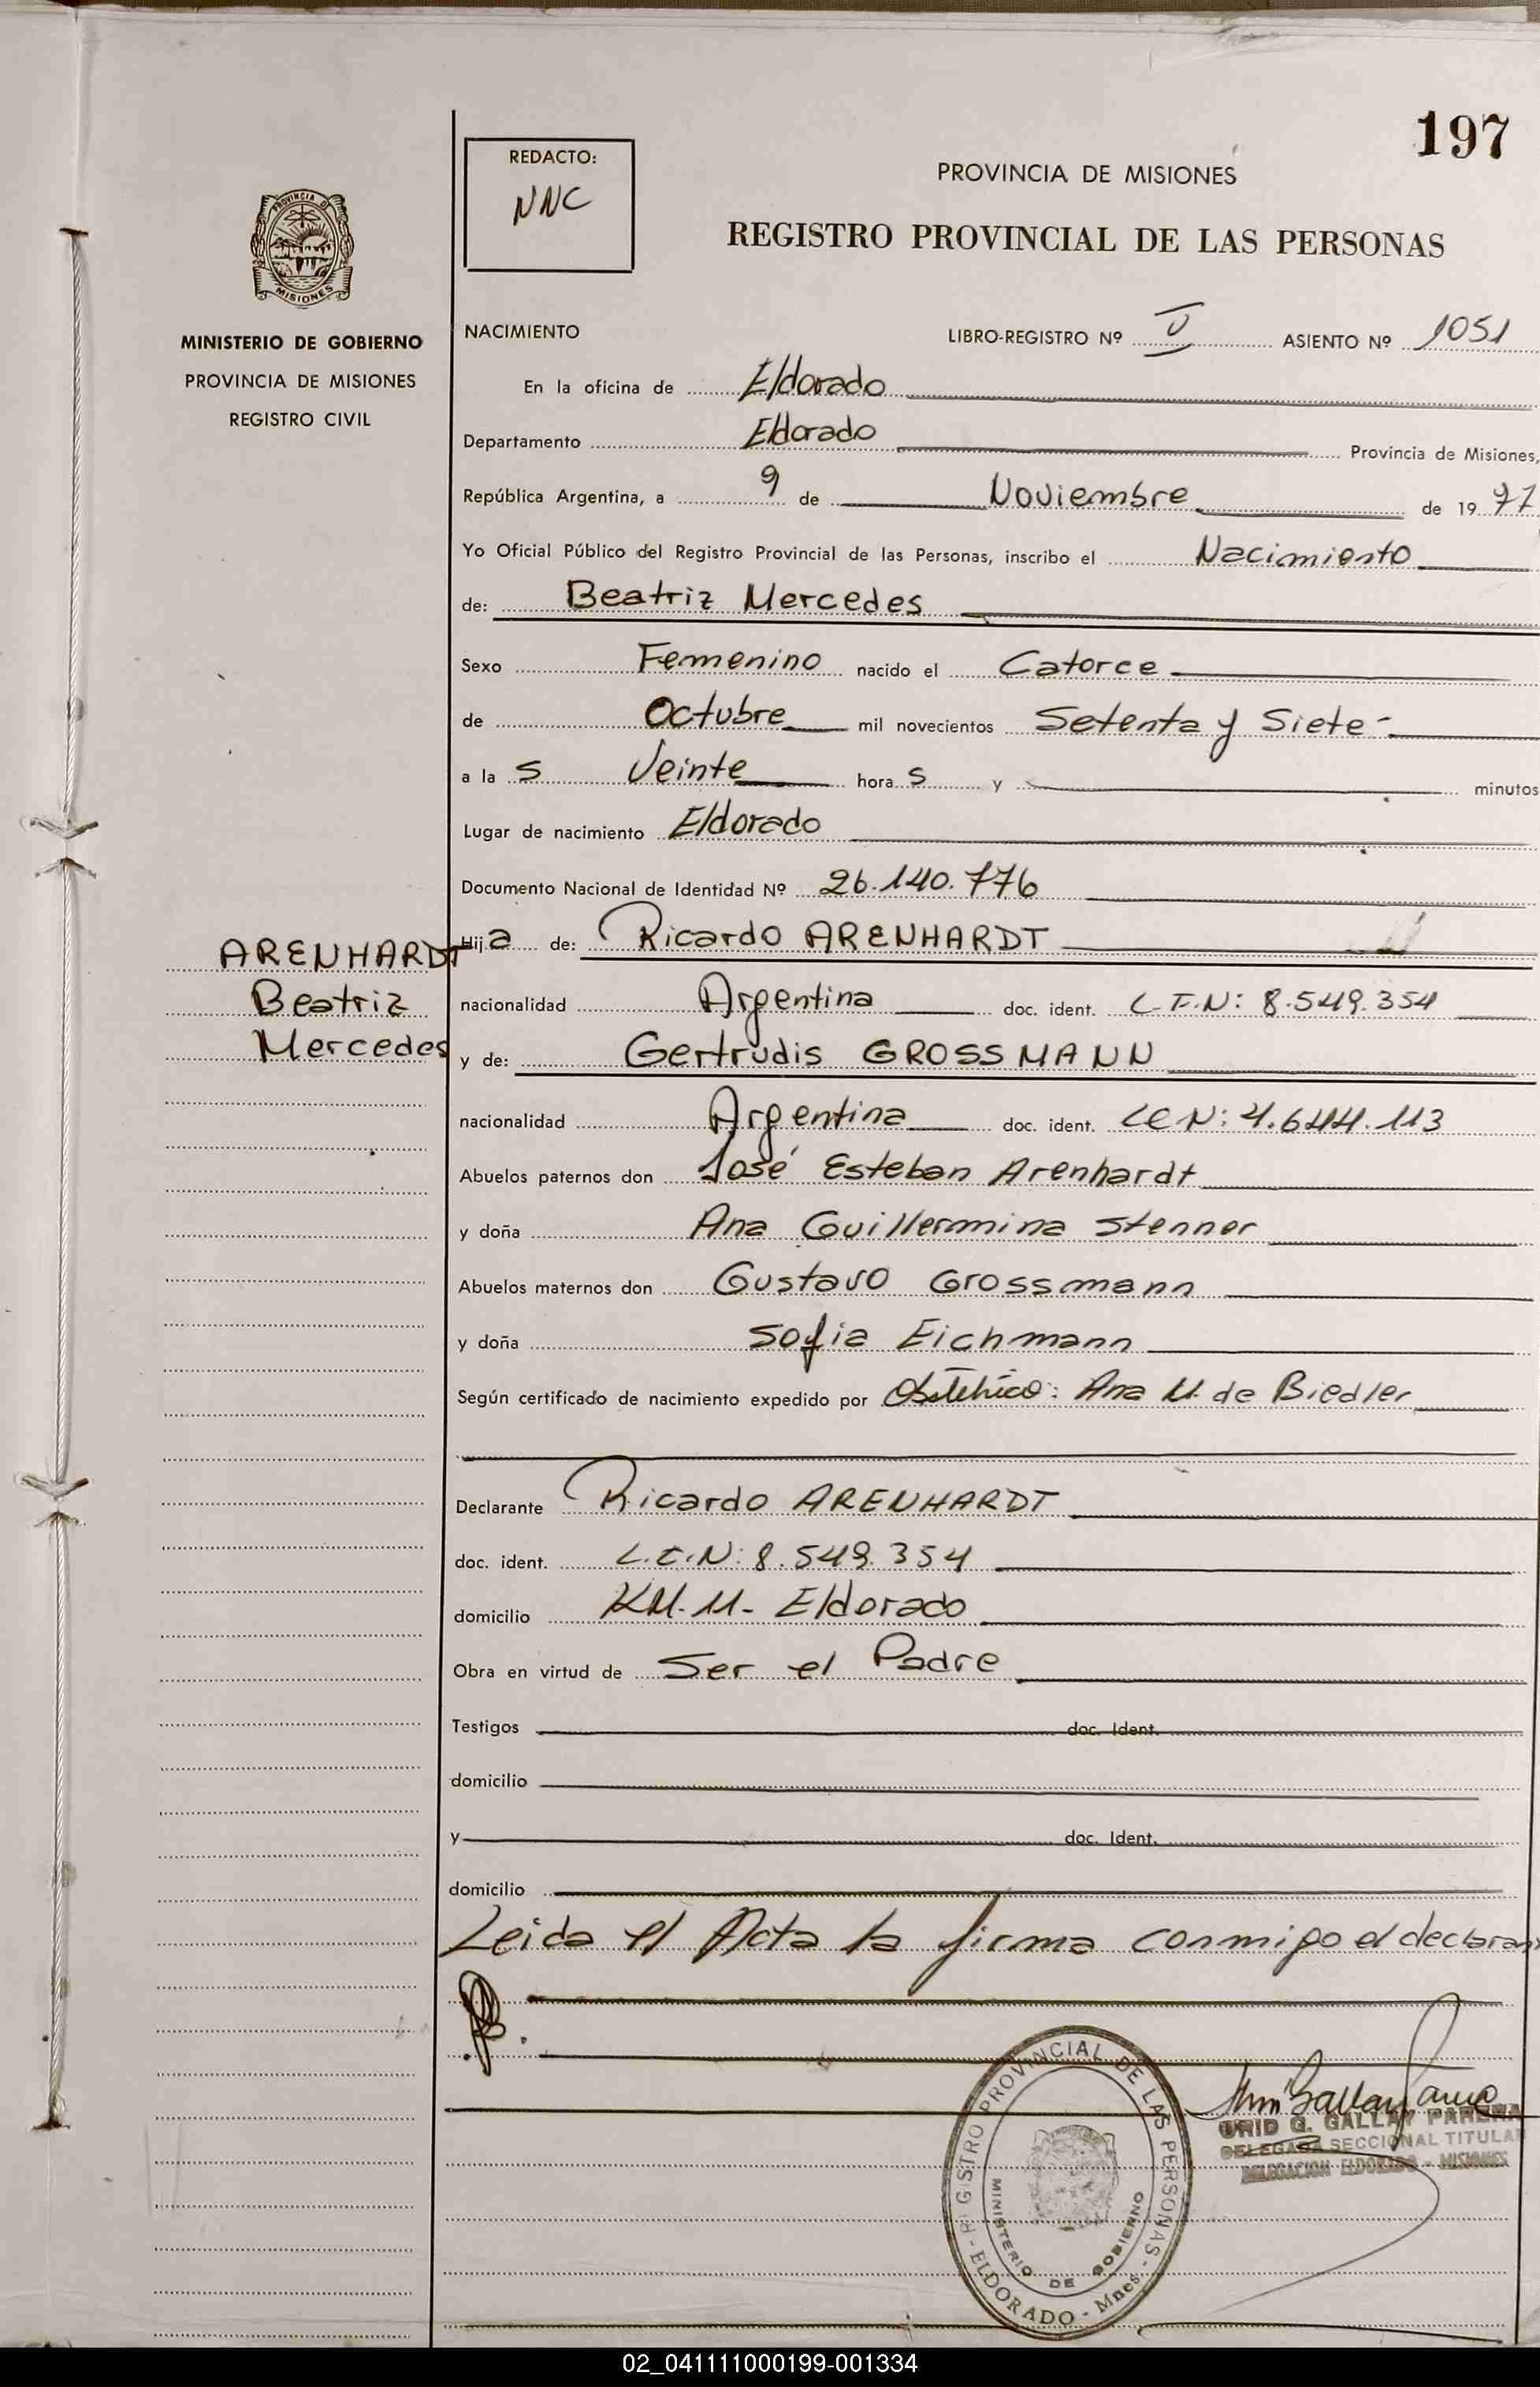 197
REDACTO:
NNC
PROVINCIA DE MISIONES
REGISTRO PROVINCIAL DE LAS PERSONAS
PROVINCIA DE
MISIONES
MINISTERIO DE GOBIERNO
PROVINCIA DE MISIONES
REGISTRO CIVIL
NACIMIENTO LIBRO-REGISTRO Nº V ASIENTO Nº 1051
En la oficina de Eldorado
Departamento Eldorado Provincia de Misiones,
República Argentina, a 9 de Noviembre de 1977
Yo Oficial Público del Registro Provincial de las Personas, inscribo el Nacimiento
de: Beatriz Mercedes
Sexo Femenino nacido el Catorce
de Octubre mil novecientos Setenta y Siete-
a la s Veinte hora s y minutos
Lugar de nacimiento Eldorado
Documento Nacional de Identidad Nº 26.140.776
ARENHARDT
Beatriz
Mercedes
Hij a de: Ricardo ARENHARDT
nacionalidad Argentina doc. ident. L.E.N: 8.549.354
y de: Gertrudis GROSSMANN
nacionalidad Argentina doc. ident. LCN: 4.644.113
Abuelos paternos don José Esteban Arenhardt
y doña Ana Guillermina Stenner
Abuelos maternos don Gustavo Grossmann
y doña Sofia Eichmann
Según certificado de nacimiento expedido por Obstétrico: Ana M. de Biedler
Declarante Ricardo ARENHARDT
doc. ident. L.E.N: 8.549.354
domicilio KM. 11- Eldorado
Obra en virtud de Ser el Padre
Testigos doc. Ident.
domicilio
y doc. Ident.
domicilio
Leida el Acta la firma conmigo el declaran
REGISTRO PROVINCIAL DE LAS PERSONAS - ELDORADO - Mnes.
MINISTERIO DE GOBIERNO
G. GALLAY PARERA
DELEGADA SECCIONAL TITULAR
DELEGACION ELDORADO - MISIONES
02_041111000199-001334